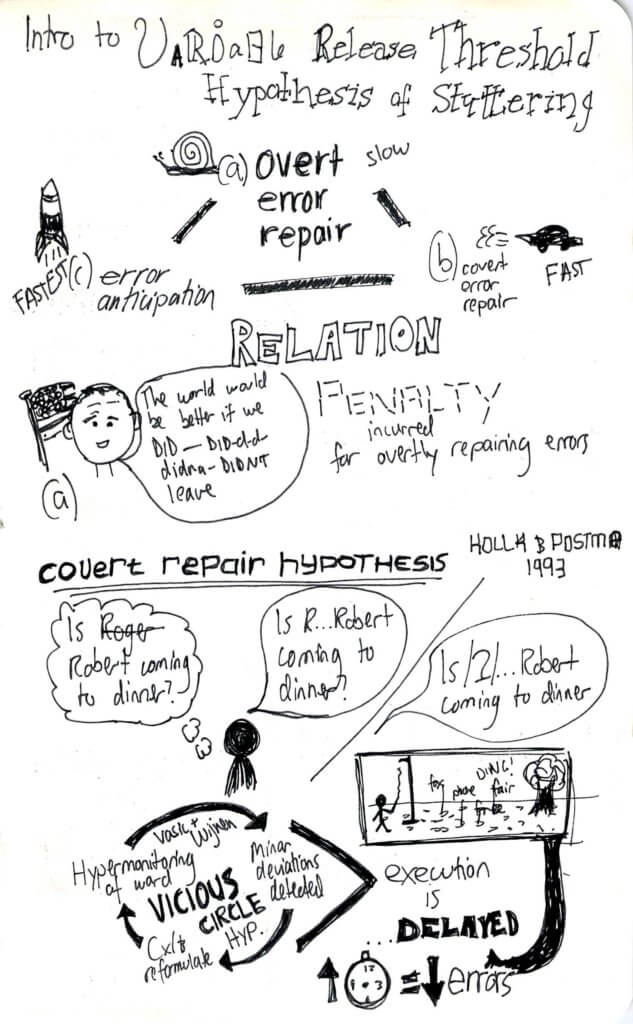 Intro to Variable Release Threshold
Hypothesis of Stuttering
(a) overt slow
error
repair
FASTEST (c) error
anticipation
(b) covert
error
repair
FAST
RELATION
The world would
be better if we
DID — DID-d-d-
didna- DIDNT
leave
(a)
PENALTY
incurred
for overtly repairing errors
covert repair hypothesis
1993
Is Roger
Robert coming
to dinner?
Is R...Robert
coming to
dinner?
Is /I/... Robert
coming to dinner
DING!
fox phone fair
Vasic + Wijnen
Hypermonitoring
of word
Minor
deviations
detected
VICIOUS
CIRCLE
HYP.
reformulate
execution
is
...DELAYED
12
3
= errors